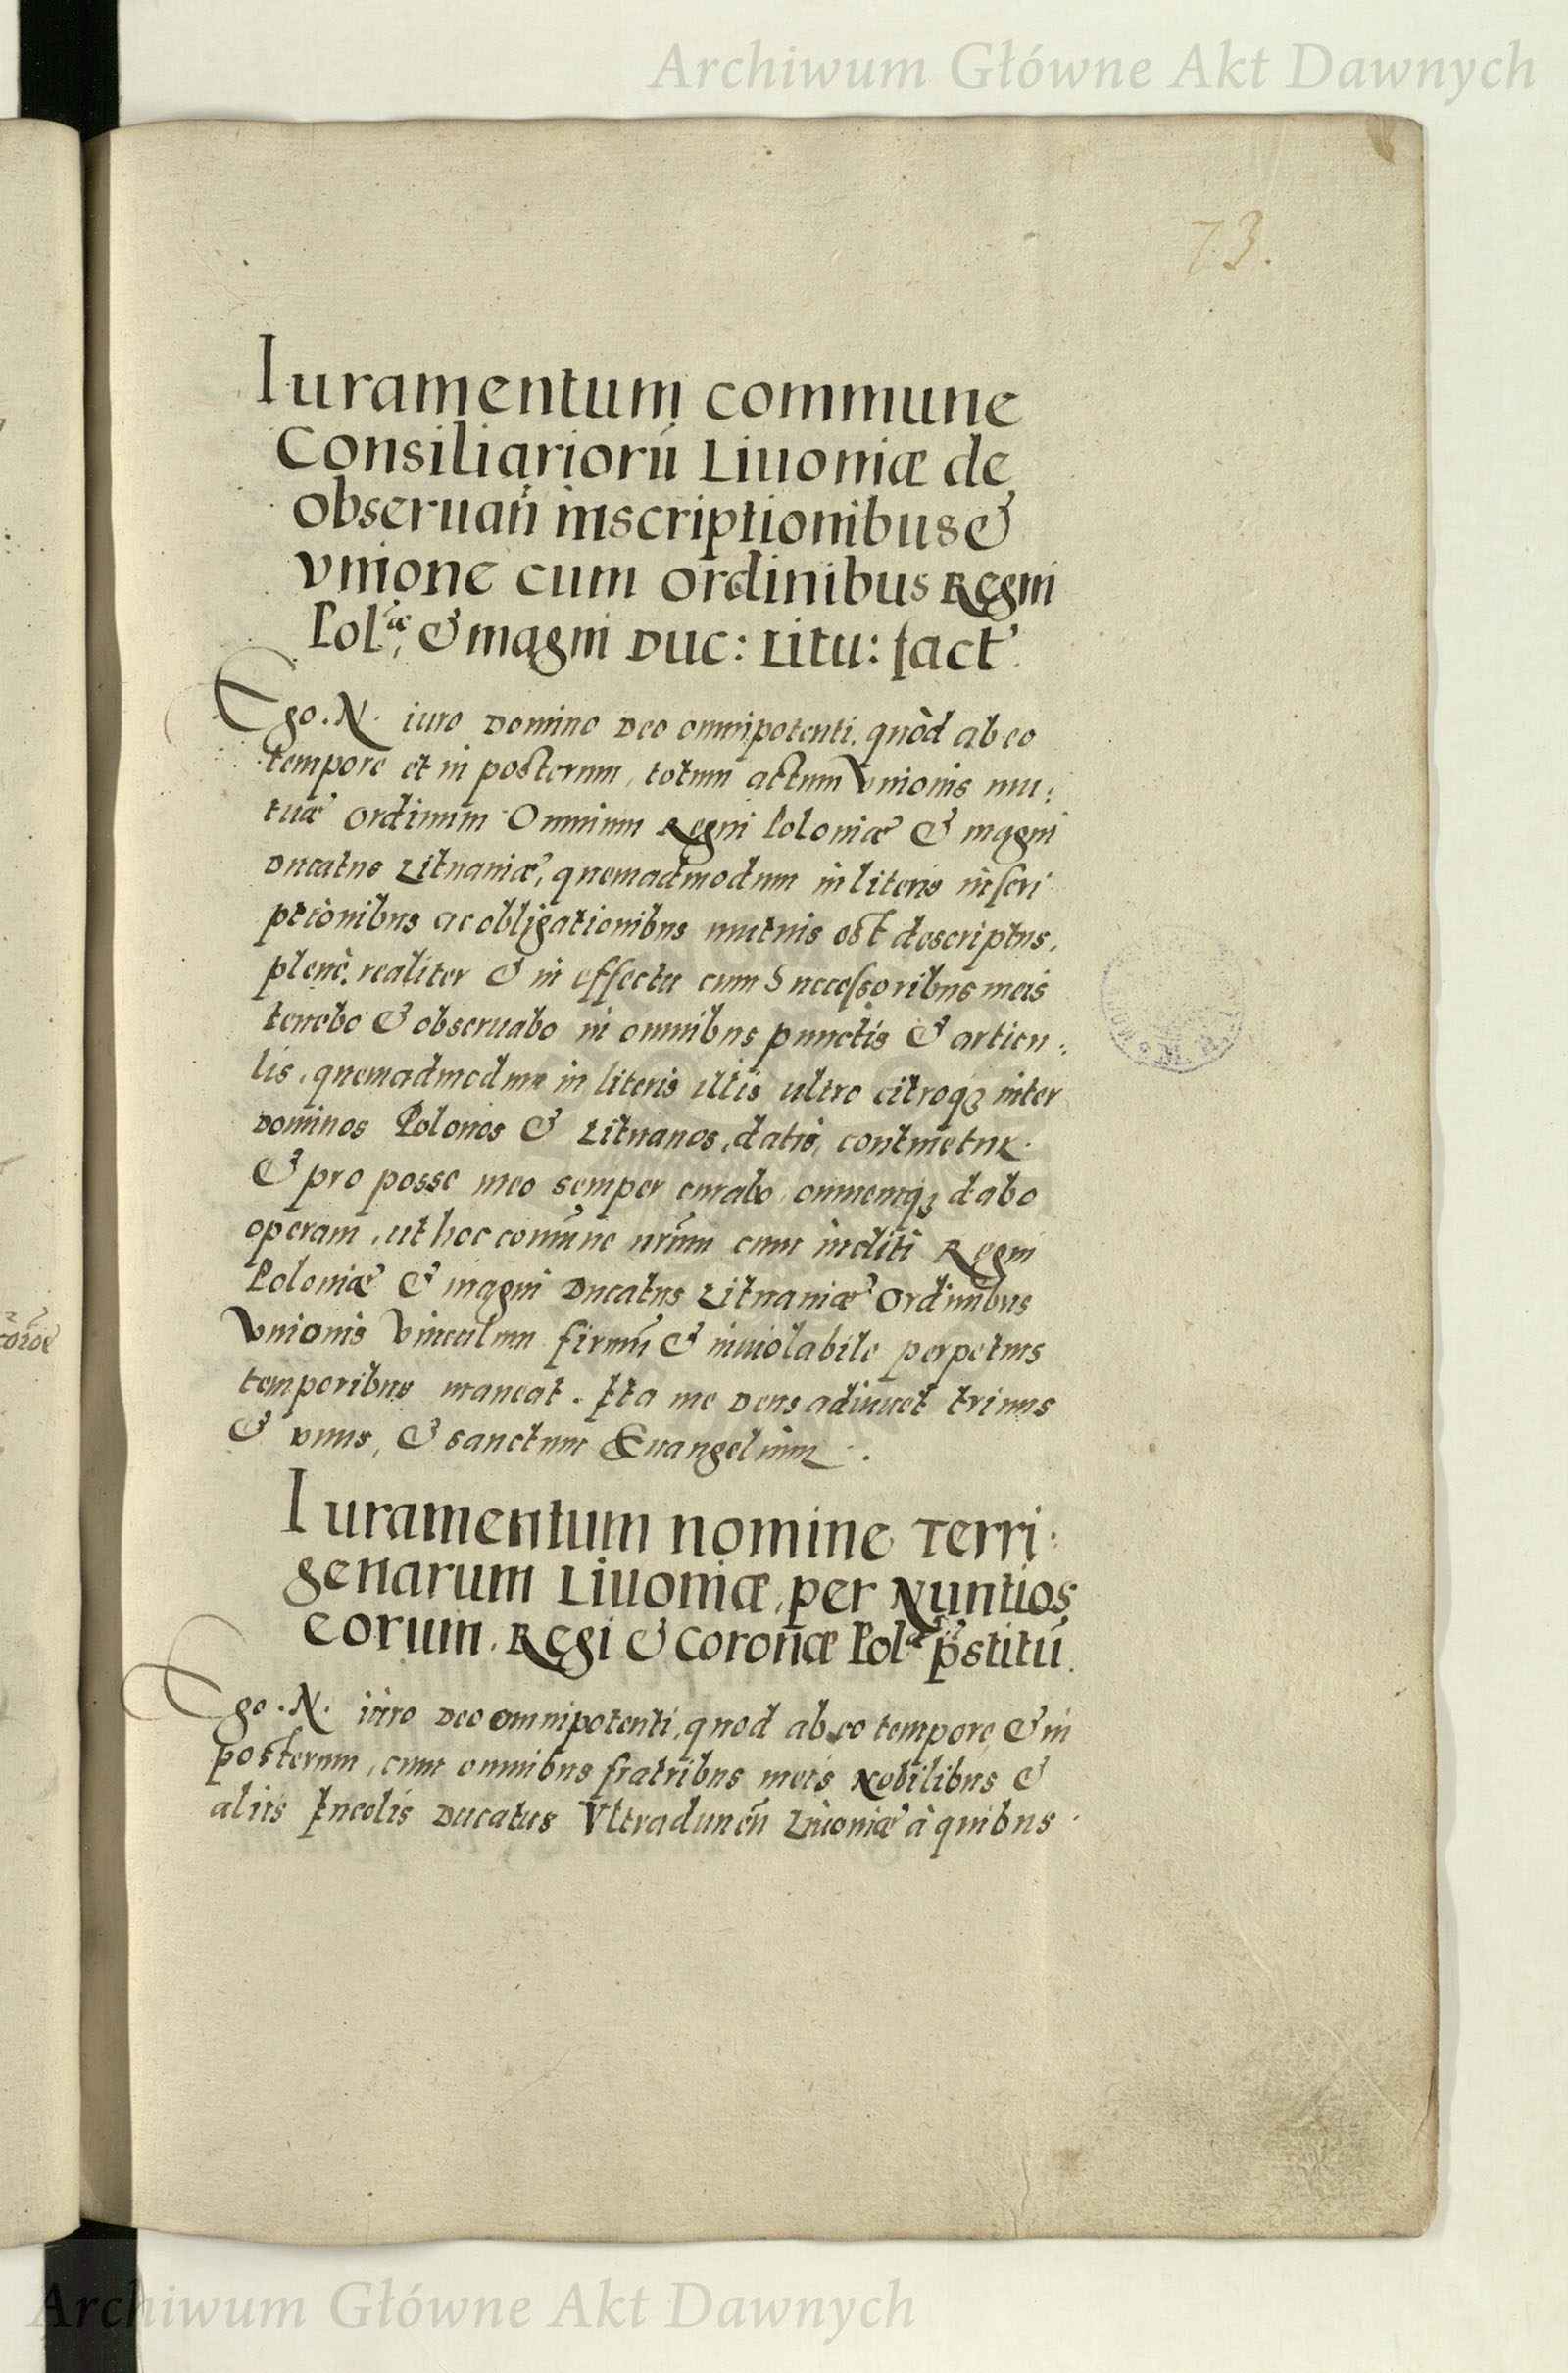 Archiwum Główne Akt Dawnych
73.
Iuramentum commune
Consiliariorū Liuoniæ de
obseruań inscriptionibus &
vnione cum ordinibus Regni
Pol.æ, & magni Duc: Litu: fact'.
Ego. N. iuro Domino Deo omnipotenti. quòd ab eo
tempore et in posterum, totum actum Vnionis mu:
tuæ ordinum Omnium Regni Poloniæ & magni
Ducatus Lituaniæ, quemadmodum in literis inscri
ptionibus ac obligationibus mutuis est descriptus,
plenè, realiter & in effectu cum Successoribus meis
tenebo & obseruabo in omnibus punctis & articu:
lis, quemadmodum in literis illis ultro citroqȝ inter
Dominos Polonos & Lituanos, datis, continetur.
& pro posse meo semper curabo, omnemqȝ dabo
operam, ut hoc comūne nr̄um cum incliti Regni
Poloniæ & magni Ducatus Lituaniæ Ordinibus
Vnionis Vinculum firmū & inuiolabile perpetuis
temporibus maneat. Ita me Deus adiuuet trinus
& vnus, & sanctum Euangelium.
Iuramentum nomine Terri:
genarum Liuoniæ, per Nuntios
eorum. Regi & Coronæ Pol.æ p̄stitū.
Ego. N. iuro Deo omnipotenti, quod ab eo tempore, & in
posterum, cum omnibus fratribus meis Nobilibus &
aliis Incolis Ducatus Vltradunen̄ Liuoniæ à quibus
Archiwum Główne Akt Dawnych